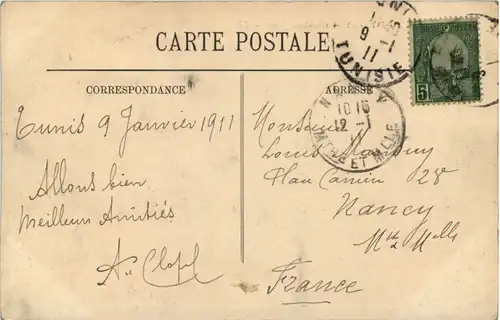 CARTE POSTALE
CORRESPONDANCE
ADRESSE
TUNISIE
9 -1
11
5
NANCY
10 15
12 -1
11
MTHE ET MLLE
Tunis 9 Janvier 1911
Allons bien
Meilleurs Amitiés
Monsieur
Louis
28
Nancy
Mthe Mlle
France